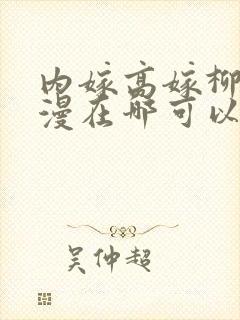 内嫁高嫁柳
漫在哪可以
吴仲超